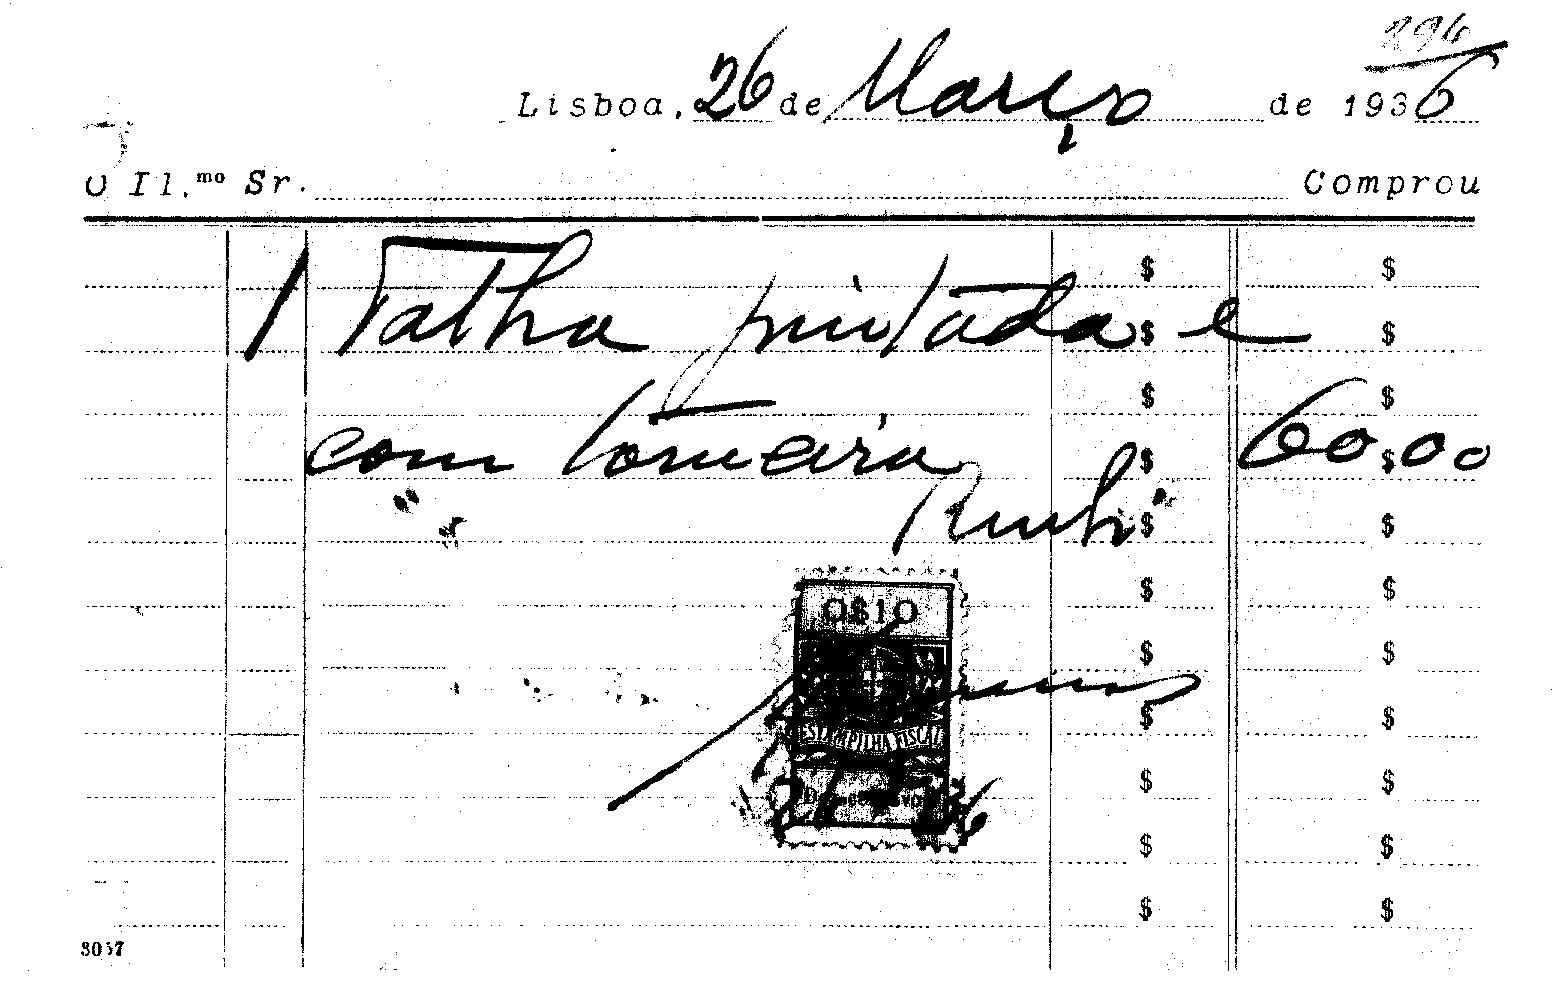 296
Lisboa, 26 de Março de 1936
O Il.mo Sr. Comprou
1 Talha pintada e
com torneira 60$00
0$10
ESTAMPILHA FISCAL
3057